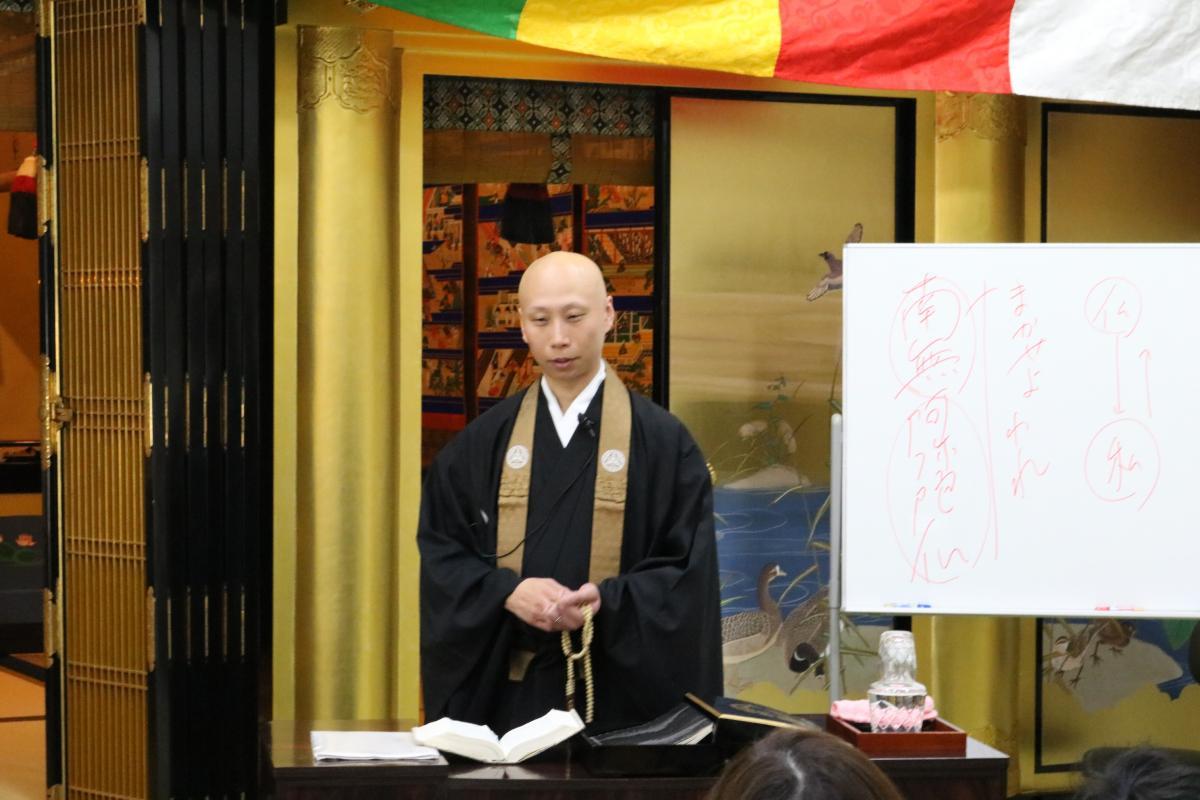 仏
私
まかせよ われ
南無阿弥陀仏